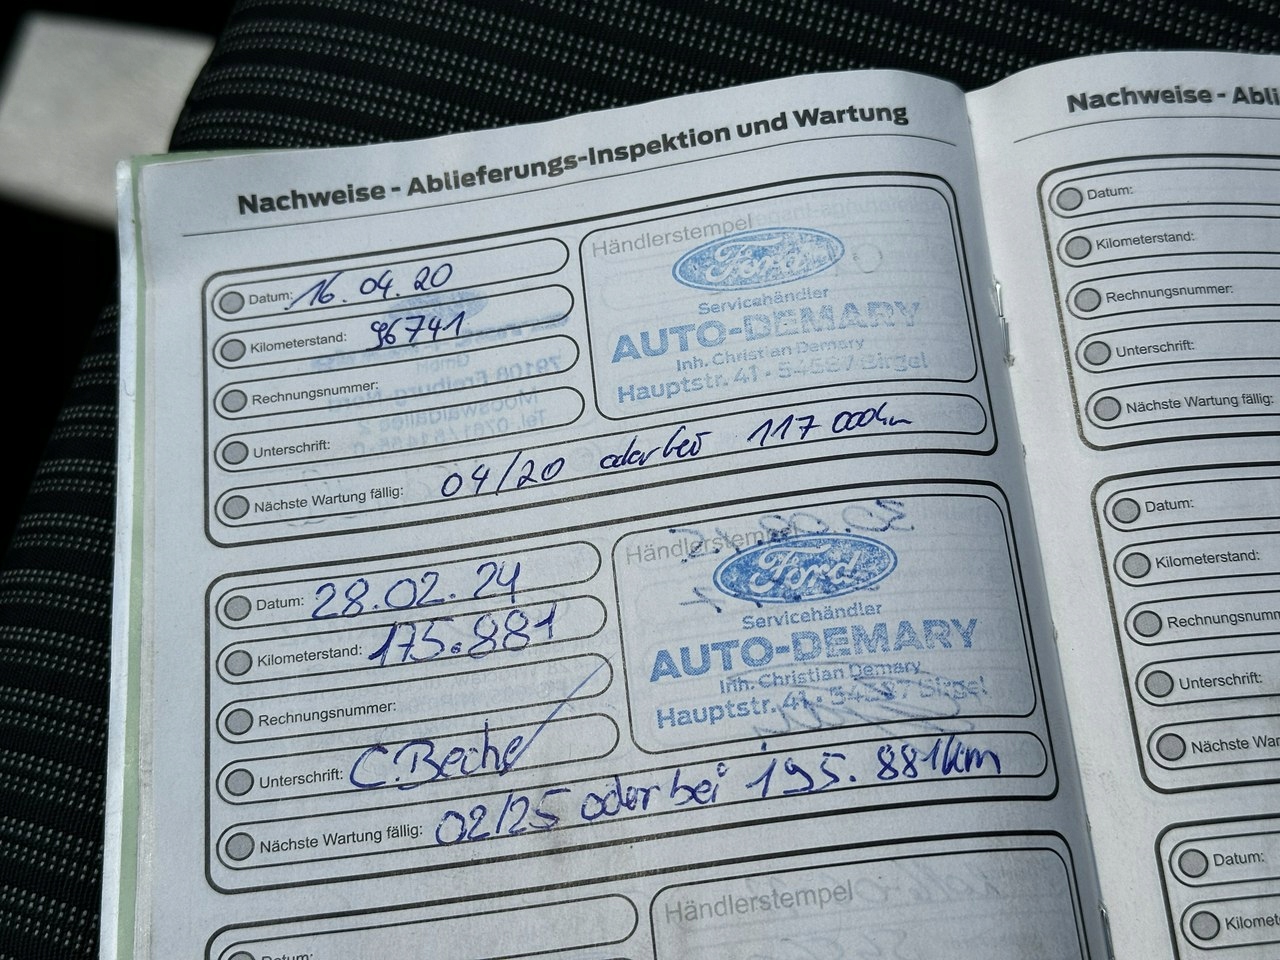 Nachweise - Ablieferungs-Inspektion und Wartung
Datum: 16.04.20
Kilometerstand: 96741
Rechnungsnummer:
Unterschrift:
Nächste Wartung fällig: 04/20 oder bei 117 000km
Händlerstempel
Ford
Servicehändler
AUTO-DEMARY
Inh. Christian Demary
Hauptstr. 41 · 54587 Birgel
Datum: 28.02.24
Kilometerstand: 175.881
Rechnungsnummer:
Unterschrift: C. Beche
Nächste Wartung fällig: 02/25 oder bei 195.881km
Händlerstempel
Ford
Servicehändler
AUTO-DEMARY
Inh. Christian Demary
Hauptstr. 41 · 54587 Birgel
Datum:
Händlerstempel
Nachweise - Abli
Datum:
Kilometerstand:
Rechnungsnummer:
Unterschrift:
Nächste Wartung fällig:
Datum:
Kilometerstand:
Rechnungsnumm
Unterschrift:
Nächste War
Datum:
Kilomet